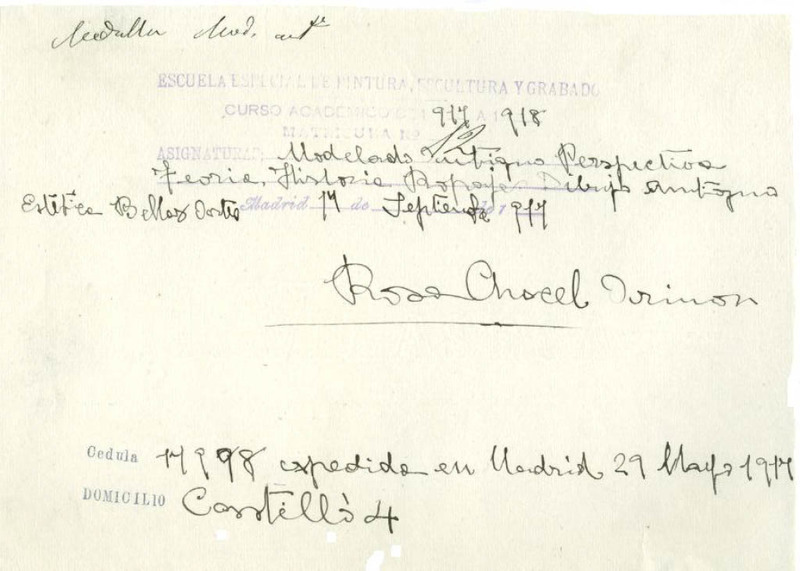 Medalla Mod. antº
ESCUELA ESPECIAL DE PINTURA, ESCULTURA Y GRABADO
CURSO ACADÉMICO DE 1917 A 1918
MATRICULA Nº 12
ASIGNATURAS: Modelado Antiguo Perspectiva
Teoria, Historia Ropajes Dibujo Antiguo
Estética Bellas Artes Madrid 17 de Septiembre de 1917
Rosa Chacel Arimon
Cedula 17998 expedida en Madrid 29 Mayo 1917
DOMICILIO Castelló 4